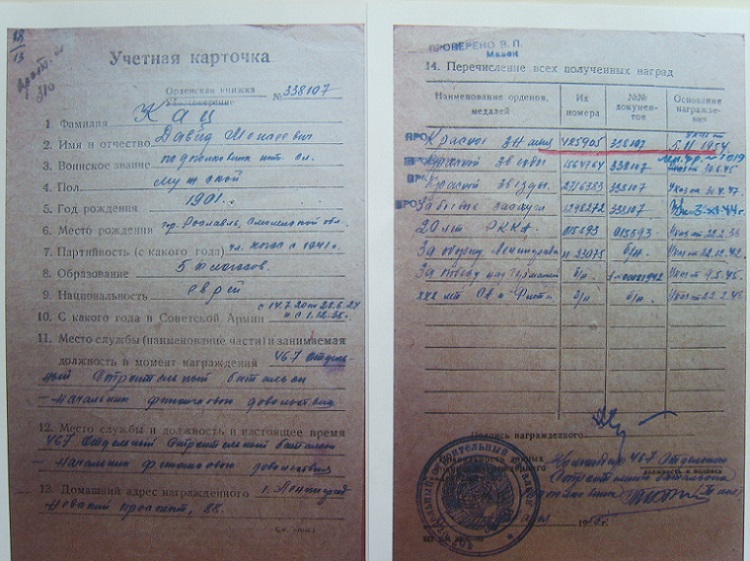 18
13
310
Учетная карточка
Орденская книжка
Удостоверение
№ 338107
1. Фамилия Кац
2. Имя и отчество Давид
3. Воинское звание подполковник инт. сл.
4. Пол мужской
5. Год рождения 1901.
6. Место рождения гор. Рославль, Смоленской обл.
7. Партийность (с какого года) чл. КПСС с 1941г.
8. Образование 5 классов.
9. Национальность еврей
10. С какого года в Советской Армии с 14.7.20 по 22.6.24
и с 1.12.35г.
11. Место службы (наименование части) и занимаемая
должность в момент награждения 467 Отдель-
ный Строительный батальон
– начальник финансового довольствия
12. Место службы и должность в настоящее время
467 Отдельный Строительный батальон
– начальник финансового довольствия
13. Домашний адрес награжденного г. Ленинград
Невский проспект, 88.
(См. лист.)
ПРОВЕРЕНО В.П.
14. Перечисление всех полученных наград
Наименование орденов, медалей
Их номера
№№ документов
Основание награждения
Красное Знамя 425905 338107 Указ от 5.11.1954
Красной звезды 1664764 338107
Красной Звезды. 2716383 338107 Указ 30.4.47
За боевые заслуги 1298272 338107
20 лет РККА 015693 015693 Указ от 22.2.38
За оборону Ленинграда 23075 б/н Указ от 22.12.42
За победу над Германией б/н Указ от 9.5.45
XXX лет СА и Флота б/н б/н Указ от 22.2.48
Подпись награжденного
Командир 467 Отдельного
должность и подпись
Строительного батальона